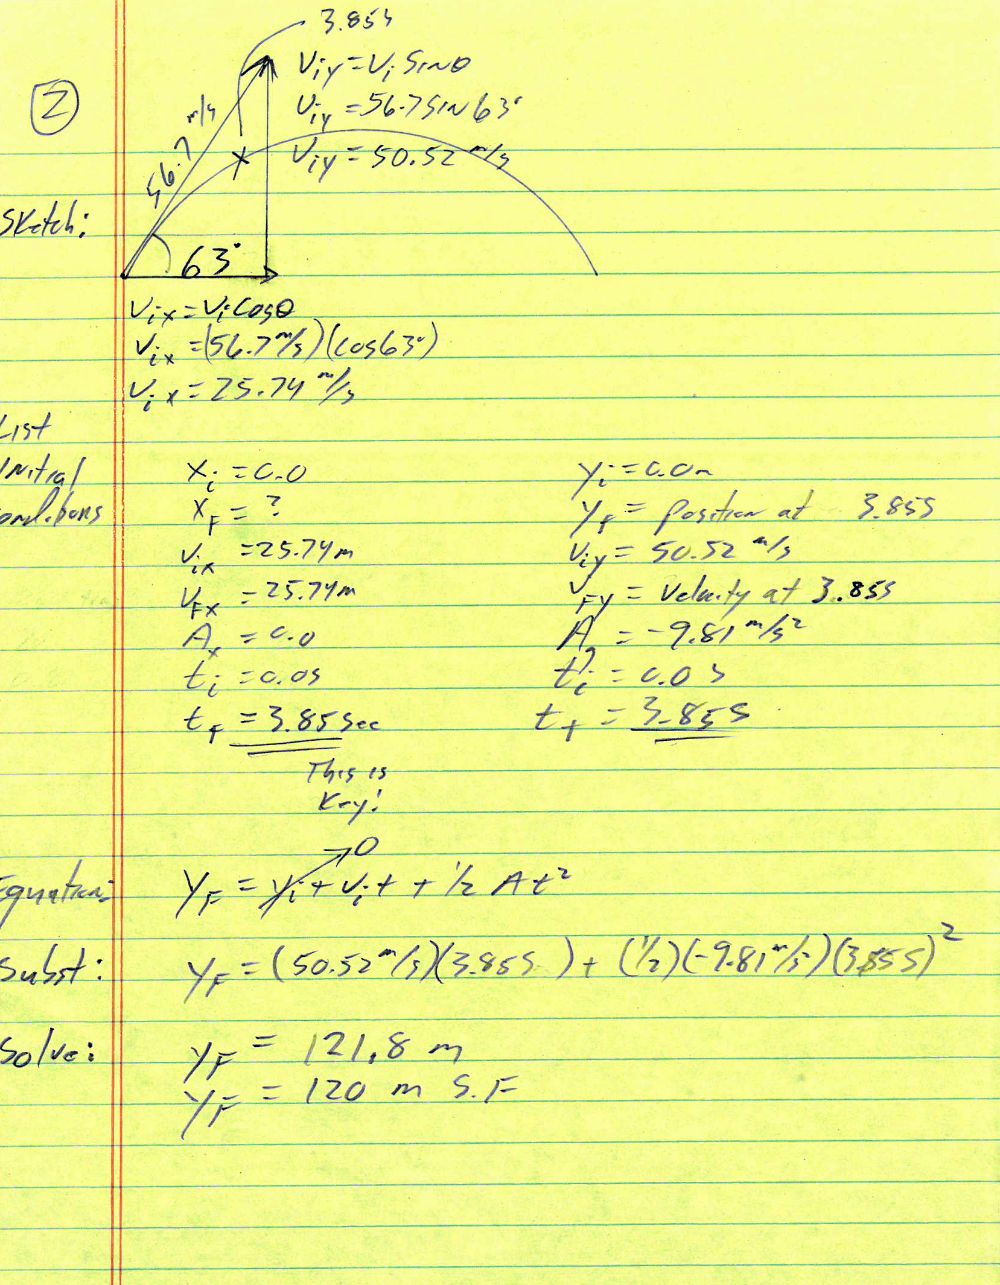 3.85s
②
Viy = Vi Sinθ
Viy = 56.7 SIN 63°
Viy = 50.52 m/s
56.7 m/s
Sketch:
63°
Vix = Vi Cosθ
Vix = (56.7 m/s)(cos63°)
Vix = 25.74 m/s
List
Initial
Conditions
Xi = 0.0
XF = ?
Vix = 25.74m
VFx = 25.74m
Ax = 0.0
ti = 0.0s
tF = 3.85 Sec
This is
Key!
yi = 0.0m
yf = Position at 3.85s
Viy = 50.52 m/s
VFy = Velocity at 3.85s
Ay = -9.81 m/s²
ti = 0.0 s
tf = 3.85 s
0
Equation:
yF = yi + Vit + 1/2 At²
Subst:
yF = (50.52 m/s)(3.85s) + (1/2)(-9.81 m/s²)(3.85s)²
Solve:
yF = 121.8 m
yF = 120 m S.F